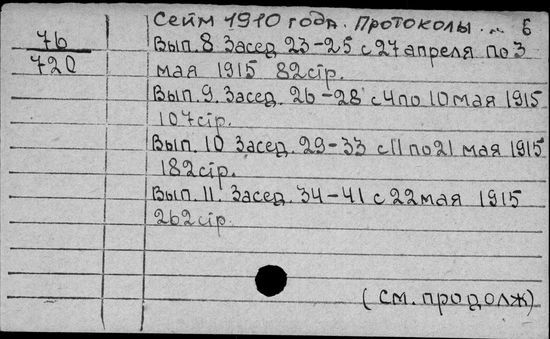 Сейм 1910 года. Протоколы... 6
76
720
Вып. 8 Засед. 23-25 с 27 апреля по 3
мая 1915 82стр.
Вып. 9. Засед. 26-28 с 4 по 10 мая 1915
107стр.
Вып. 10 Засед. 29-33 с 11 по 21 мая 1915
182стр.
Вып. 11. Засед. 34-41 с 22 мая 1915
262стр.
(см. продолж)